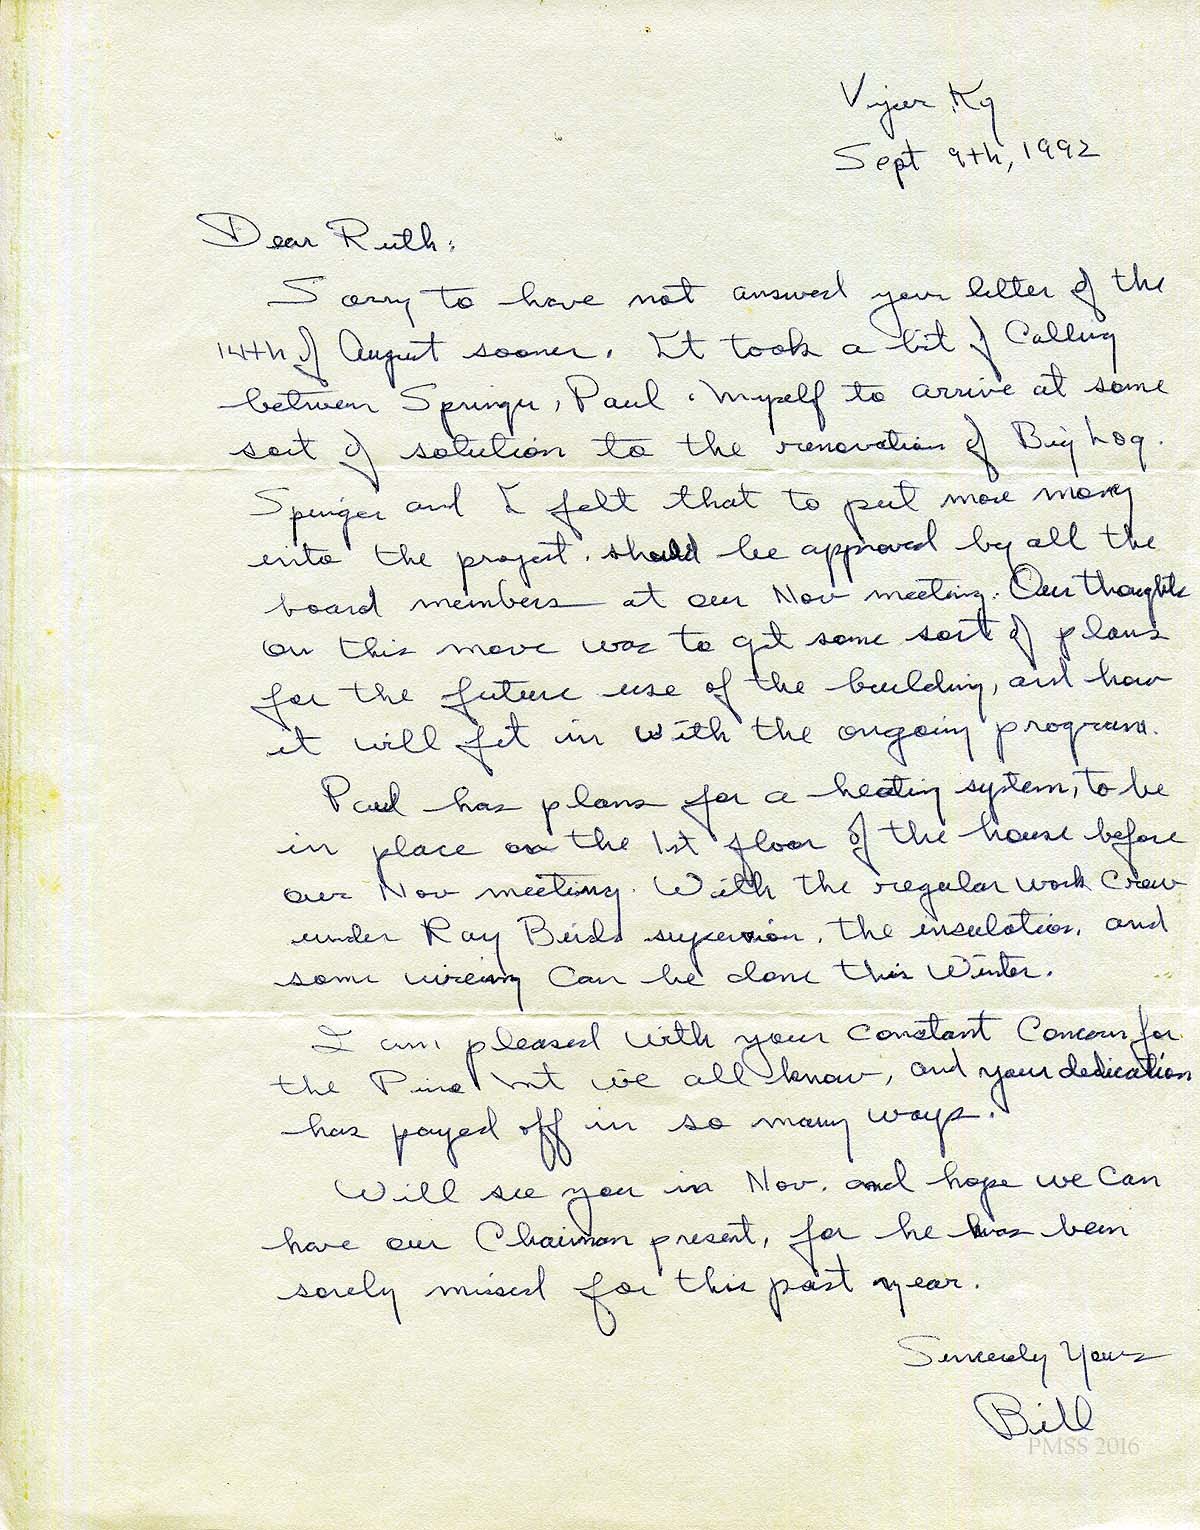 Viper Ky
Sept 9th, 1992
Dear Ruth:
Sorry to have not answed your letter of the
14th of August sooner. It took a bit of Calling
between Springer, Paul & Myself to arrive at some
sort of solution to the renovation of Big Log.
Springer and I felt that to put more money
into the project, should be approved by all the
board members at our Nov meeting. Our thoughts
on this move was to get some sort of plans
for the future use of the building, and how
it will fit in with the ongoing program.
Paul has plans for a heating system, to be
in place on the 1st floor of the house before
our Nov meeting. With the regular work Crew
under Ray Birds supervion, the insulation, and
some wireing Can be done this Winter.
I am pleased with your constant Concern for
the Pine Mt we all know, and your dedication
has payed off in so many ways.
Will see you in Nov. and hope we Can
have our Chairman present, for he has been
sorely missed for this past year.
Sincerely Yours
Bill
PMSS 2016